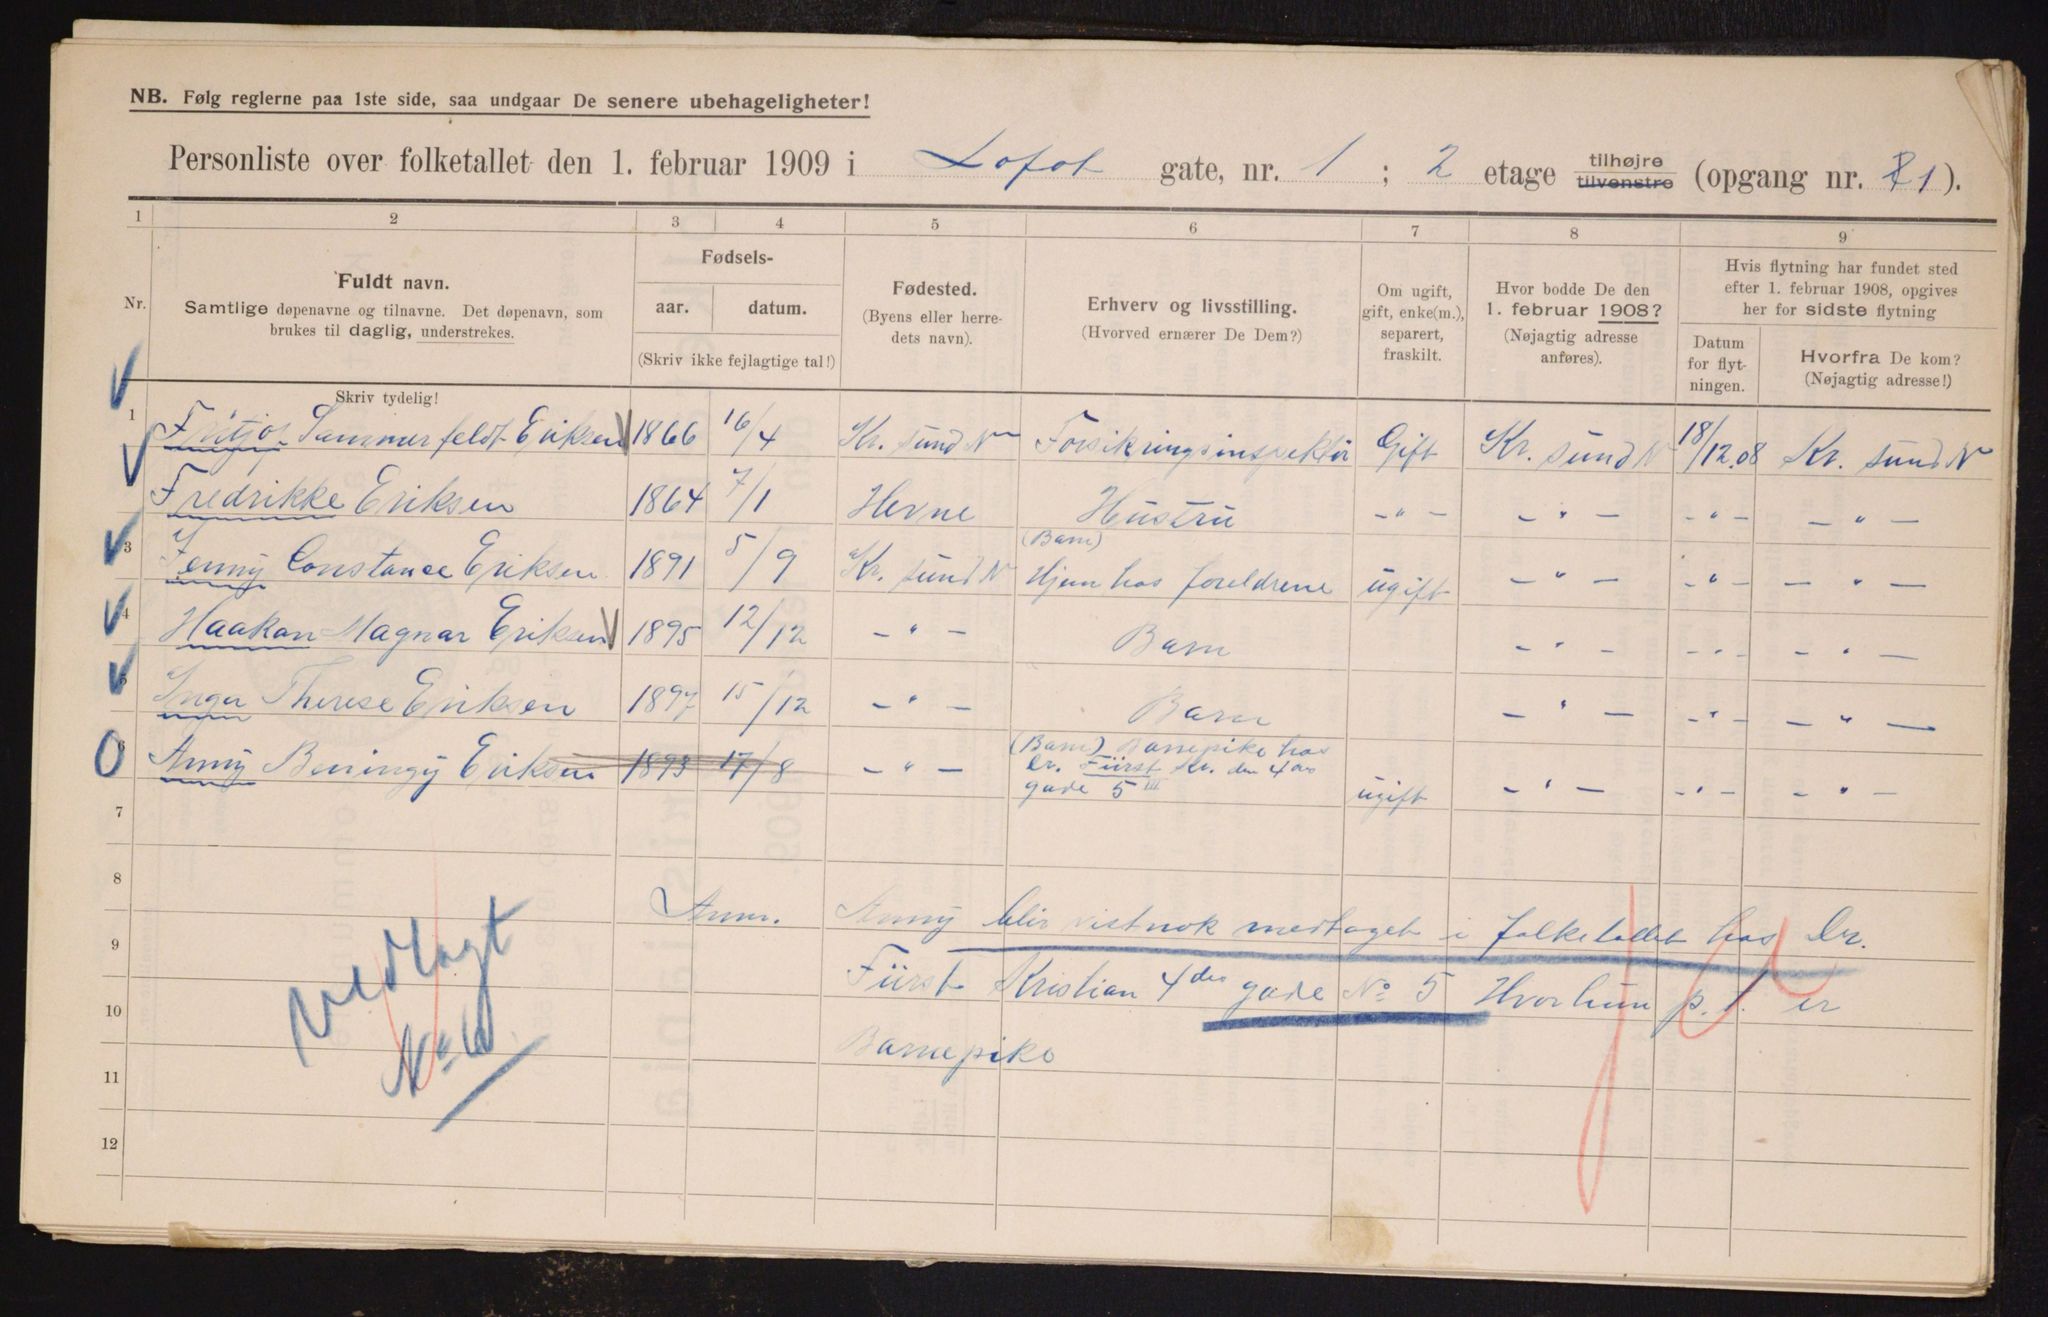 NB. Følg reglerne paa 1ste side, saa undgaar De senere ubehageligheter!
Personliste over folketallet den 1. februar 1909 i Lofot gate, nr. 1 ; 2 etage tilhøjre tilvenstre (opgang nr. 1).
1 2 3 4 5 6 7 8 9
Nr.
Fuldt navn.
Samtlige døpenavne og tilnavne. Det døpenavn, som
brukes til daglig, understrekes.
Skriv tydelig!
Fødsels-
aar. datum.
(Skriv ikke fejlagtige tal!)
Fødested.
(Byens eller herre-
dets navn).
Erhverv og livsstilling.
(Hvorved ernærer De Dem?)
Om ugift,
gift, enke(m.),
separert,
fraskilt.
Hvor bodde De den
1. februar 1908?
(Nøjagtig adresse
anføres).
Hvis flytning har fundet sted
efter 1. februar 1908, opgives
her for sidste flytning
Datum
for flyt-
ningen.
Hvorfra De kom?
(Nøjagtig adresse!)
1 Fritjof Sammerfeldt Eriksen 1866 16/4 Kr. sund N Forsikringsinspektør Gift Kr. sund N 18/12.08 Kr. sund N
Fredrikke Eriksen 1864 7/1 Hevne Hustru -"- -"- -"- -"-
3 Jenny Constance Eriksen 1891 5/9 Kr. sund N (Barn) Hjem hos foreldrene ugift -"- -"- -"-
4 Haakon Magnar Eriksen 1895 12/12 -"- Barn -"- -"- -"-
5 Inger Therese Eriksen 1897 15/12 -"- Barn -"- -"- -"-
6 Anny Beningy Eriksen 1893 17/8 -"- (Barn) Barnepike hos
Dr. Fürst Kr. den 4des
gade 5 III ugift -"- -"- -"-
7
8
Anm. Anny blir vistnok medtaget i folketallet hos Dr.
9
Fürst Kristian 4des gade No 5 Hvor hun p.t. er
10
Barnepike
11
12
Vedlagt
No 6